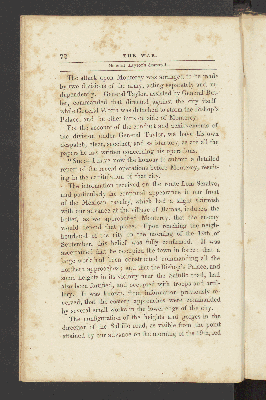 72 THE WAR.
General Taylor's Account.
The attack upon Monterey was arranged to be made
by two divisions of the army, acting separately and in-
dependently. General Taylor, assisted by General But-
ler, commanded that directed against the city itself
while General Worth was detached to storm the Bishop's
Palace, and the other forts on side of Monterey.
For the account of the conduct and achievements of
the division under General Taylor, we have his own
despatch, clear, succinct, and as
papers he has written concerning his operations.
"Sir: I have now the honour to submit a detailed
report of the recent operations before Monterey, result-
ing in the capitulation of that city.
The information received on the route from Seralvo,
and particularly the continual appearance in our front
of the Mexican cavalry, which had a slight skirmish
with our advance at the village of Ramas, induced the
belief, as we approached Monterey, that the enemy
would defend that place. Upon reaching the neigh-
bourhood of the city on the morning of the 19th of
September, this belief was fully confirmed. It was
ascertained that he occupied the town in force; that a
large work had been constructed commanding all the
northern approaches; and that the Bishop's Palace, and
some heights in its vicinity near the Saltillo road, had
also been fortified, and occupied with troops and artil-
lery. It was known, from information previously re-
ceived, that the eastern approaches were commanded
by several small works in the lower edge of the city.
The configuration of the heights and gorges in the
direction of the Saltillo road, as visible from the point
attained by our advance on the morning of the 19th, led